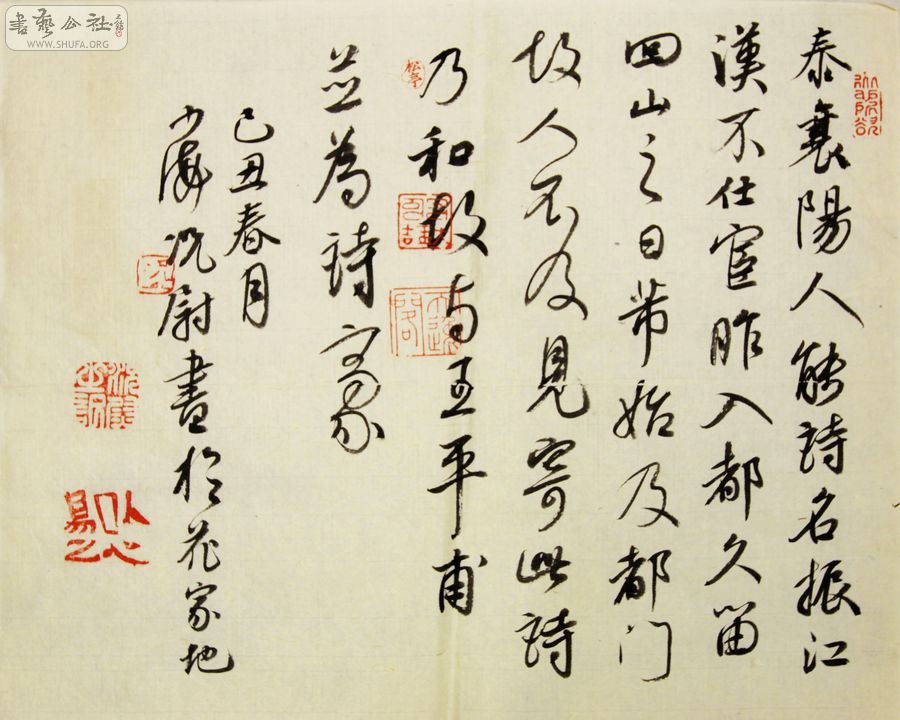 書藝公社
WWW.SHUFA.ORG
泰襄陽人能詩名振江
漢不仕宦昨入都久留
回山之日芾始及都門
故人不及見寄此詩
松亭
乃和故王平甫
並為詩豪
己丑春月
尉書於花家地